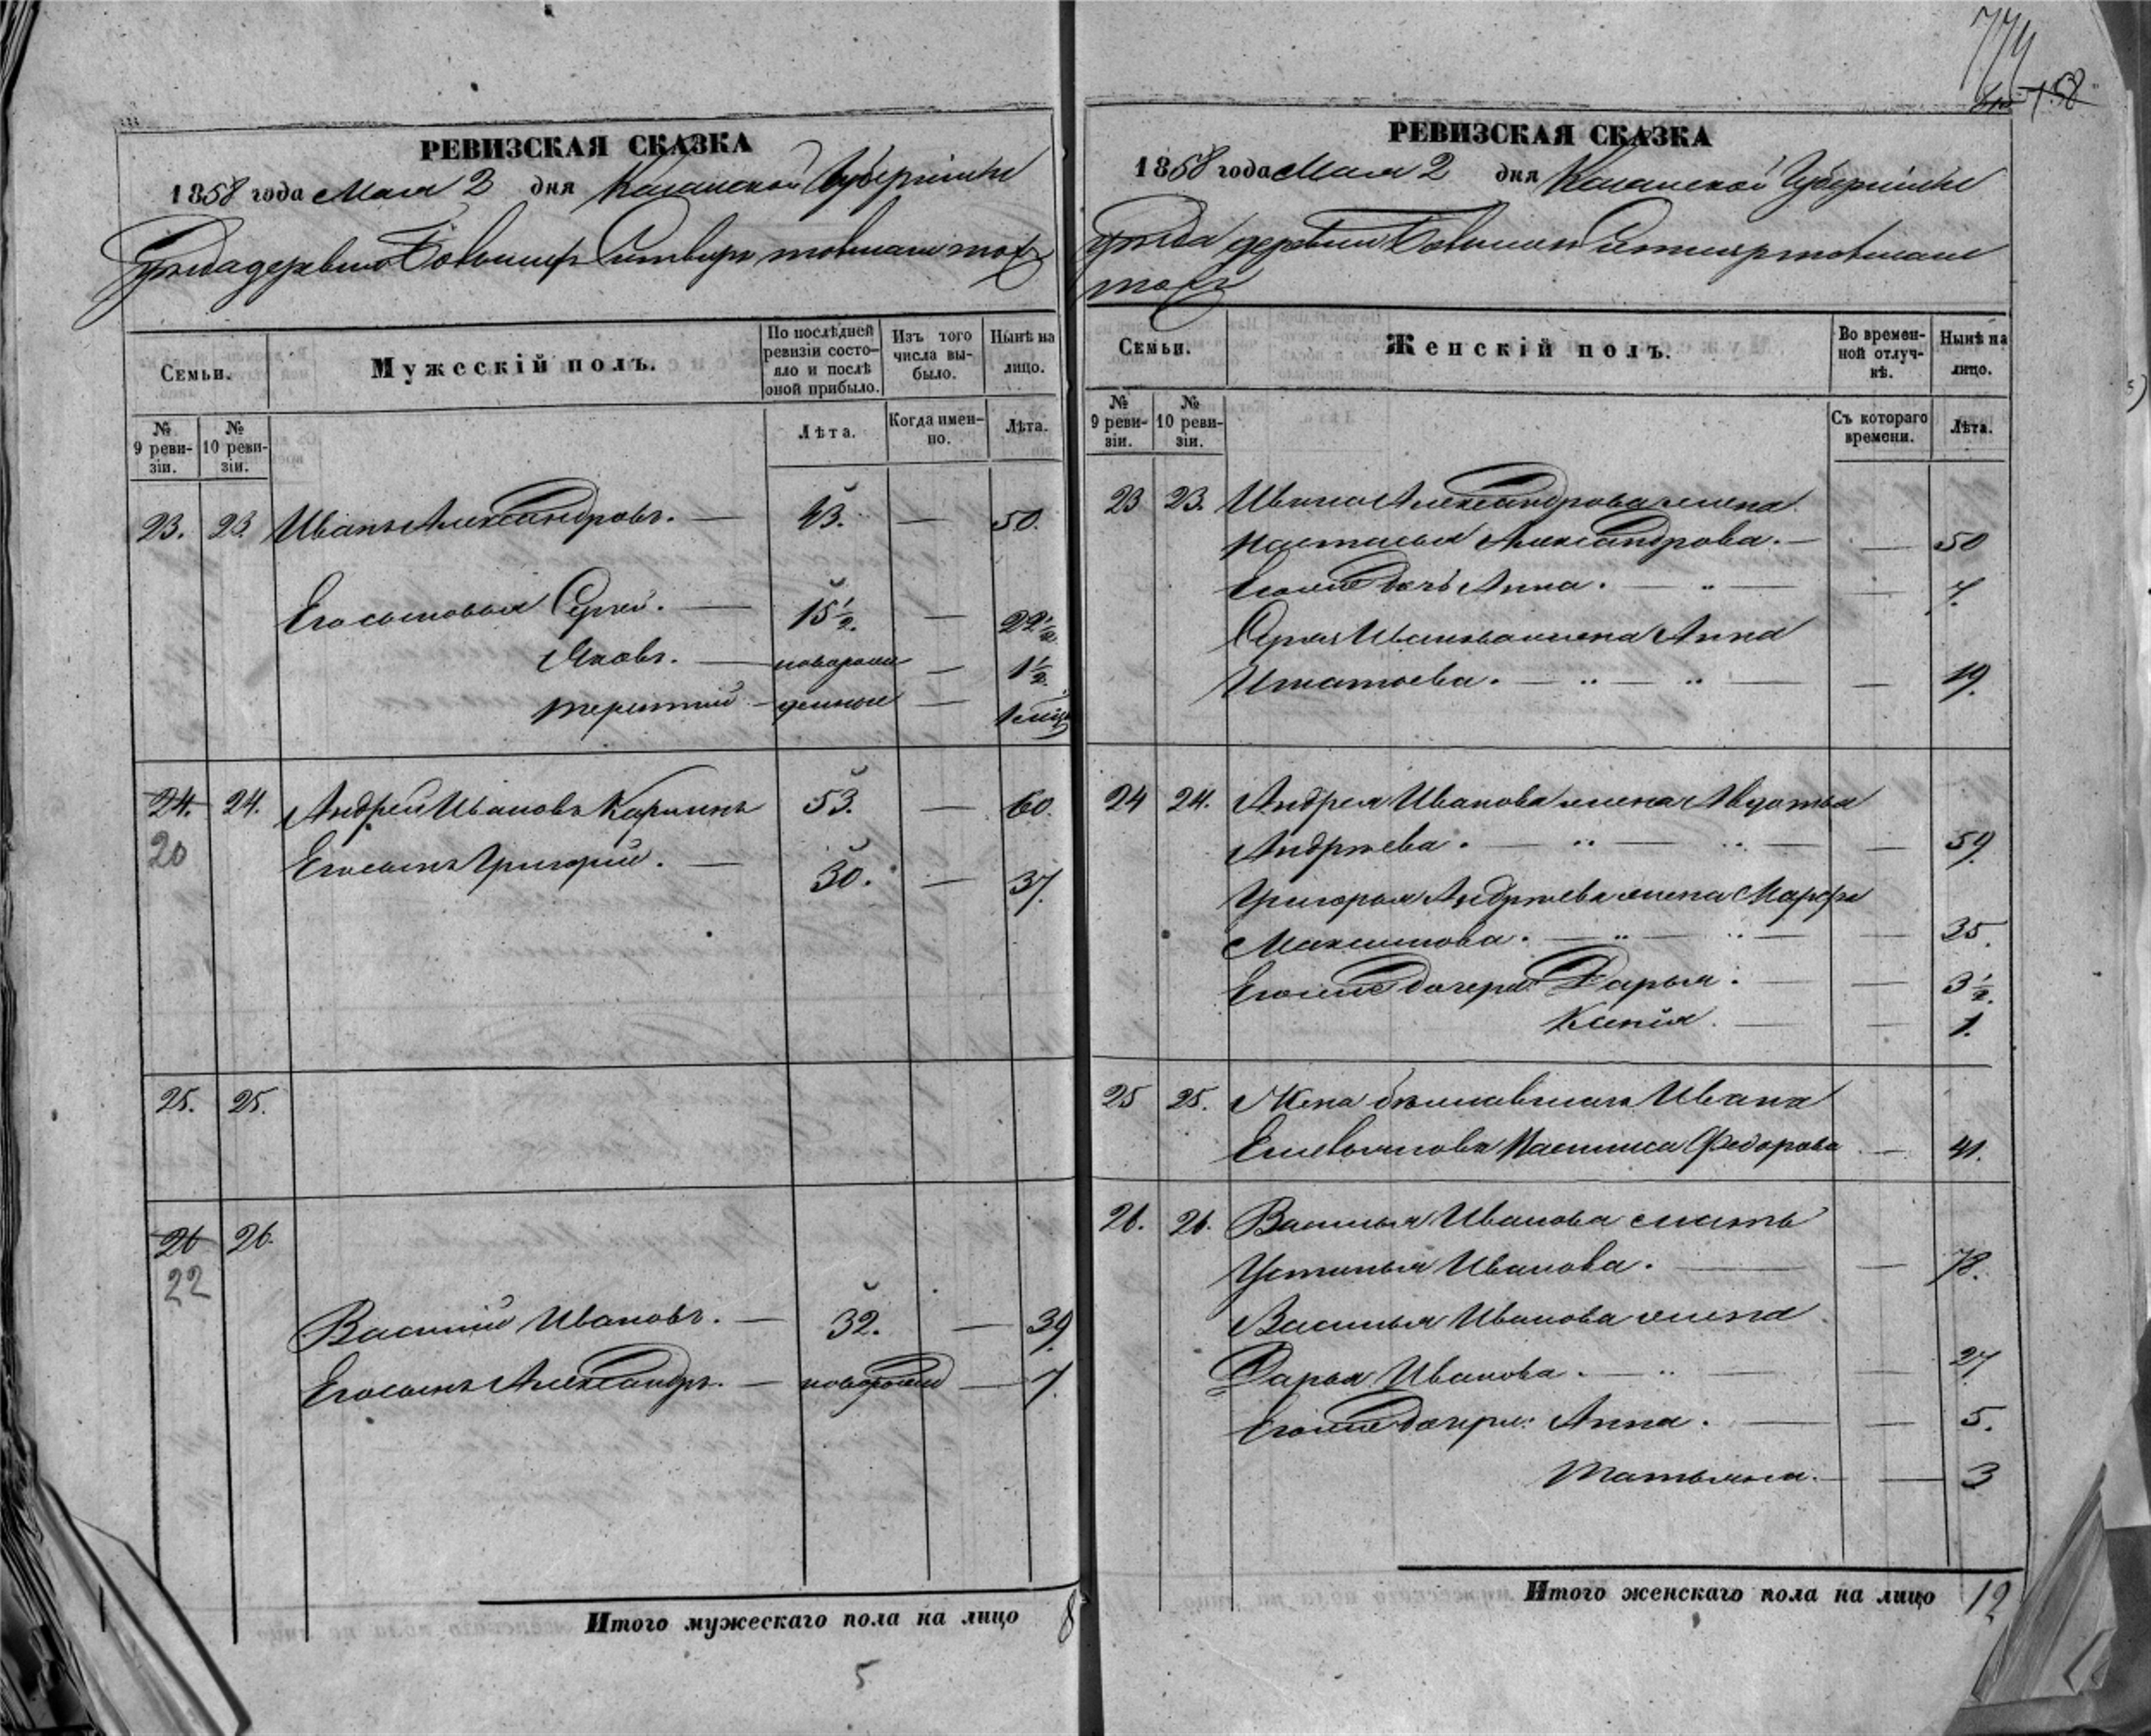 РЕВИЗСКАЯ СКАЗКА
1858 года Мая 2 дня Казанской Губерніи
Уѣзда деревни
Семьи.
Мужескій полъ.
По послѣдней ревизіи состояло и послѣ оной прибыло.
Изъ того числа выбыло.
Нынѣ на лицо.
№ 9 ревизіи.
№ 10 ревизіи.
Лѣта.
Когда именно.
Лѣта.
23. 23. Иванъ Александровъ. — 43. — 50.
Его сыновья Сергей. — 15½. — 22½.
Яковъ. — новорож — 1½.
Терентий — денные — 1 мѣс
24. 24. Андрей Ивановъ 53. — 60.
20 Его сынъ Григорий. — 30. — 37.
25. 25.
26 26.
22
Василий Ивановъ. — 32. — 39.
Его сынъ Александръ. — новорож — 7.
Итого мужескаго пола на лицо 8
5
774
158
РЕВИЗСКАЯ СКАЗКА
1858 года Мая 2 дня Казанской Губерніи
уѣзда деревни
Семьи.
Женскій полъ.
Во временной отлучкѣ.
Нынѣ на лицо.
№ 9 ревизіи.
№ 10 ревизіи.
Съ котораго времени.
Лѣта.
23 23. Ивана Александрова жена
Настасья Александрова. — — 50
Его же дочь Анна. — „ — — 7.
Сергея Иванова жена Анна
Игнатьева. — „ — „ — — 19.
24 24. Андрея Иванова жена Авдотья
Андреева. — „ — „ — — 59.
Григорья Андреева жена Марфа
Максимова. — „ — „ — — 35.
Его же дочери Дарья. — — 3½.
Ксенія. — — 1.
25 25. Жена Ивана
Емельянова Федорова — 41.
26. 26. Василья Иванова мать
Устинья Иванова. — — 78.
Василья Иванова жена
Дарья Иванова. — „ — — 27.
Его же дочери: Анна. — — 5.
Татьяна. — — 3
Итого женскаго пола на лицо 12